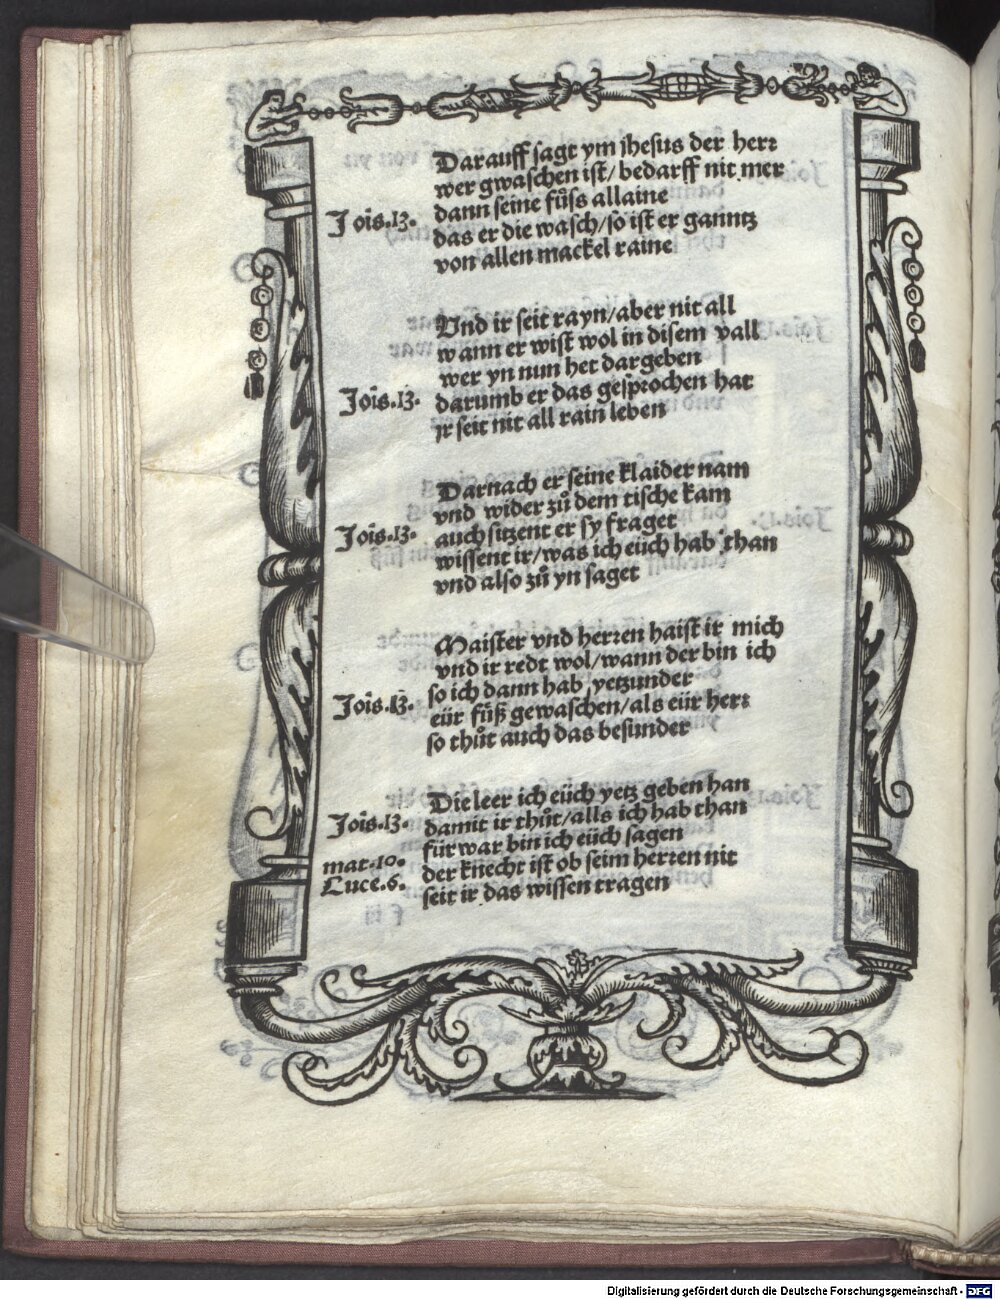 Darauff sagt ym ihesus der herr
wer gwaschen ist/ bedarff nit mer
dann seine fuͦss allaine
Jois.13.
das er die wasch/so ist er ganntz
von allen mackel raine
Vnd ir seit rayn/aber nit all
wann er wist wol in disem vall
wer yn nun het dargeben
Jois.13.
darumb er das gesprochen hat
jr seit nit all rain leben
Darnach er seine klaider nam
vnd wider zuͦ dem tische kam
Jois.13.
auch sitzent er sy fraget
wissent ir/was ich eüch hab than
vnd also zuͦ yn saget
Maister vnd herren haist ir mich
vnd ir redt wol/wann der bin ich
so ich dann hab yetzunder
Jois.13.
eür fuͦß gewaschen/als eür herr
so thuͦt auch das besunder
Die leer ich eüch yetz geben han
Jois.13.
damit ir thuͦt/alls ich hab than
für war bin ich eüch sagen
mat.10.
der knecht ist ob seim herren nit
Luce.6.
seit ir das wissen tragen
Digitalisierung gefördert durch die Deutsche Forschungsgemeinschaft - DFG